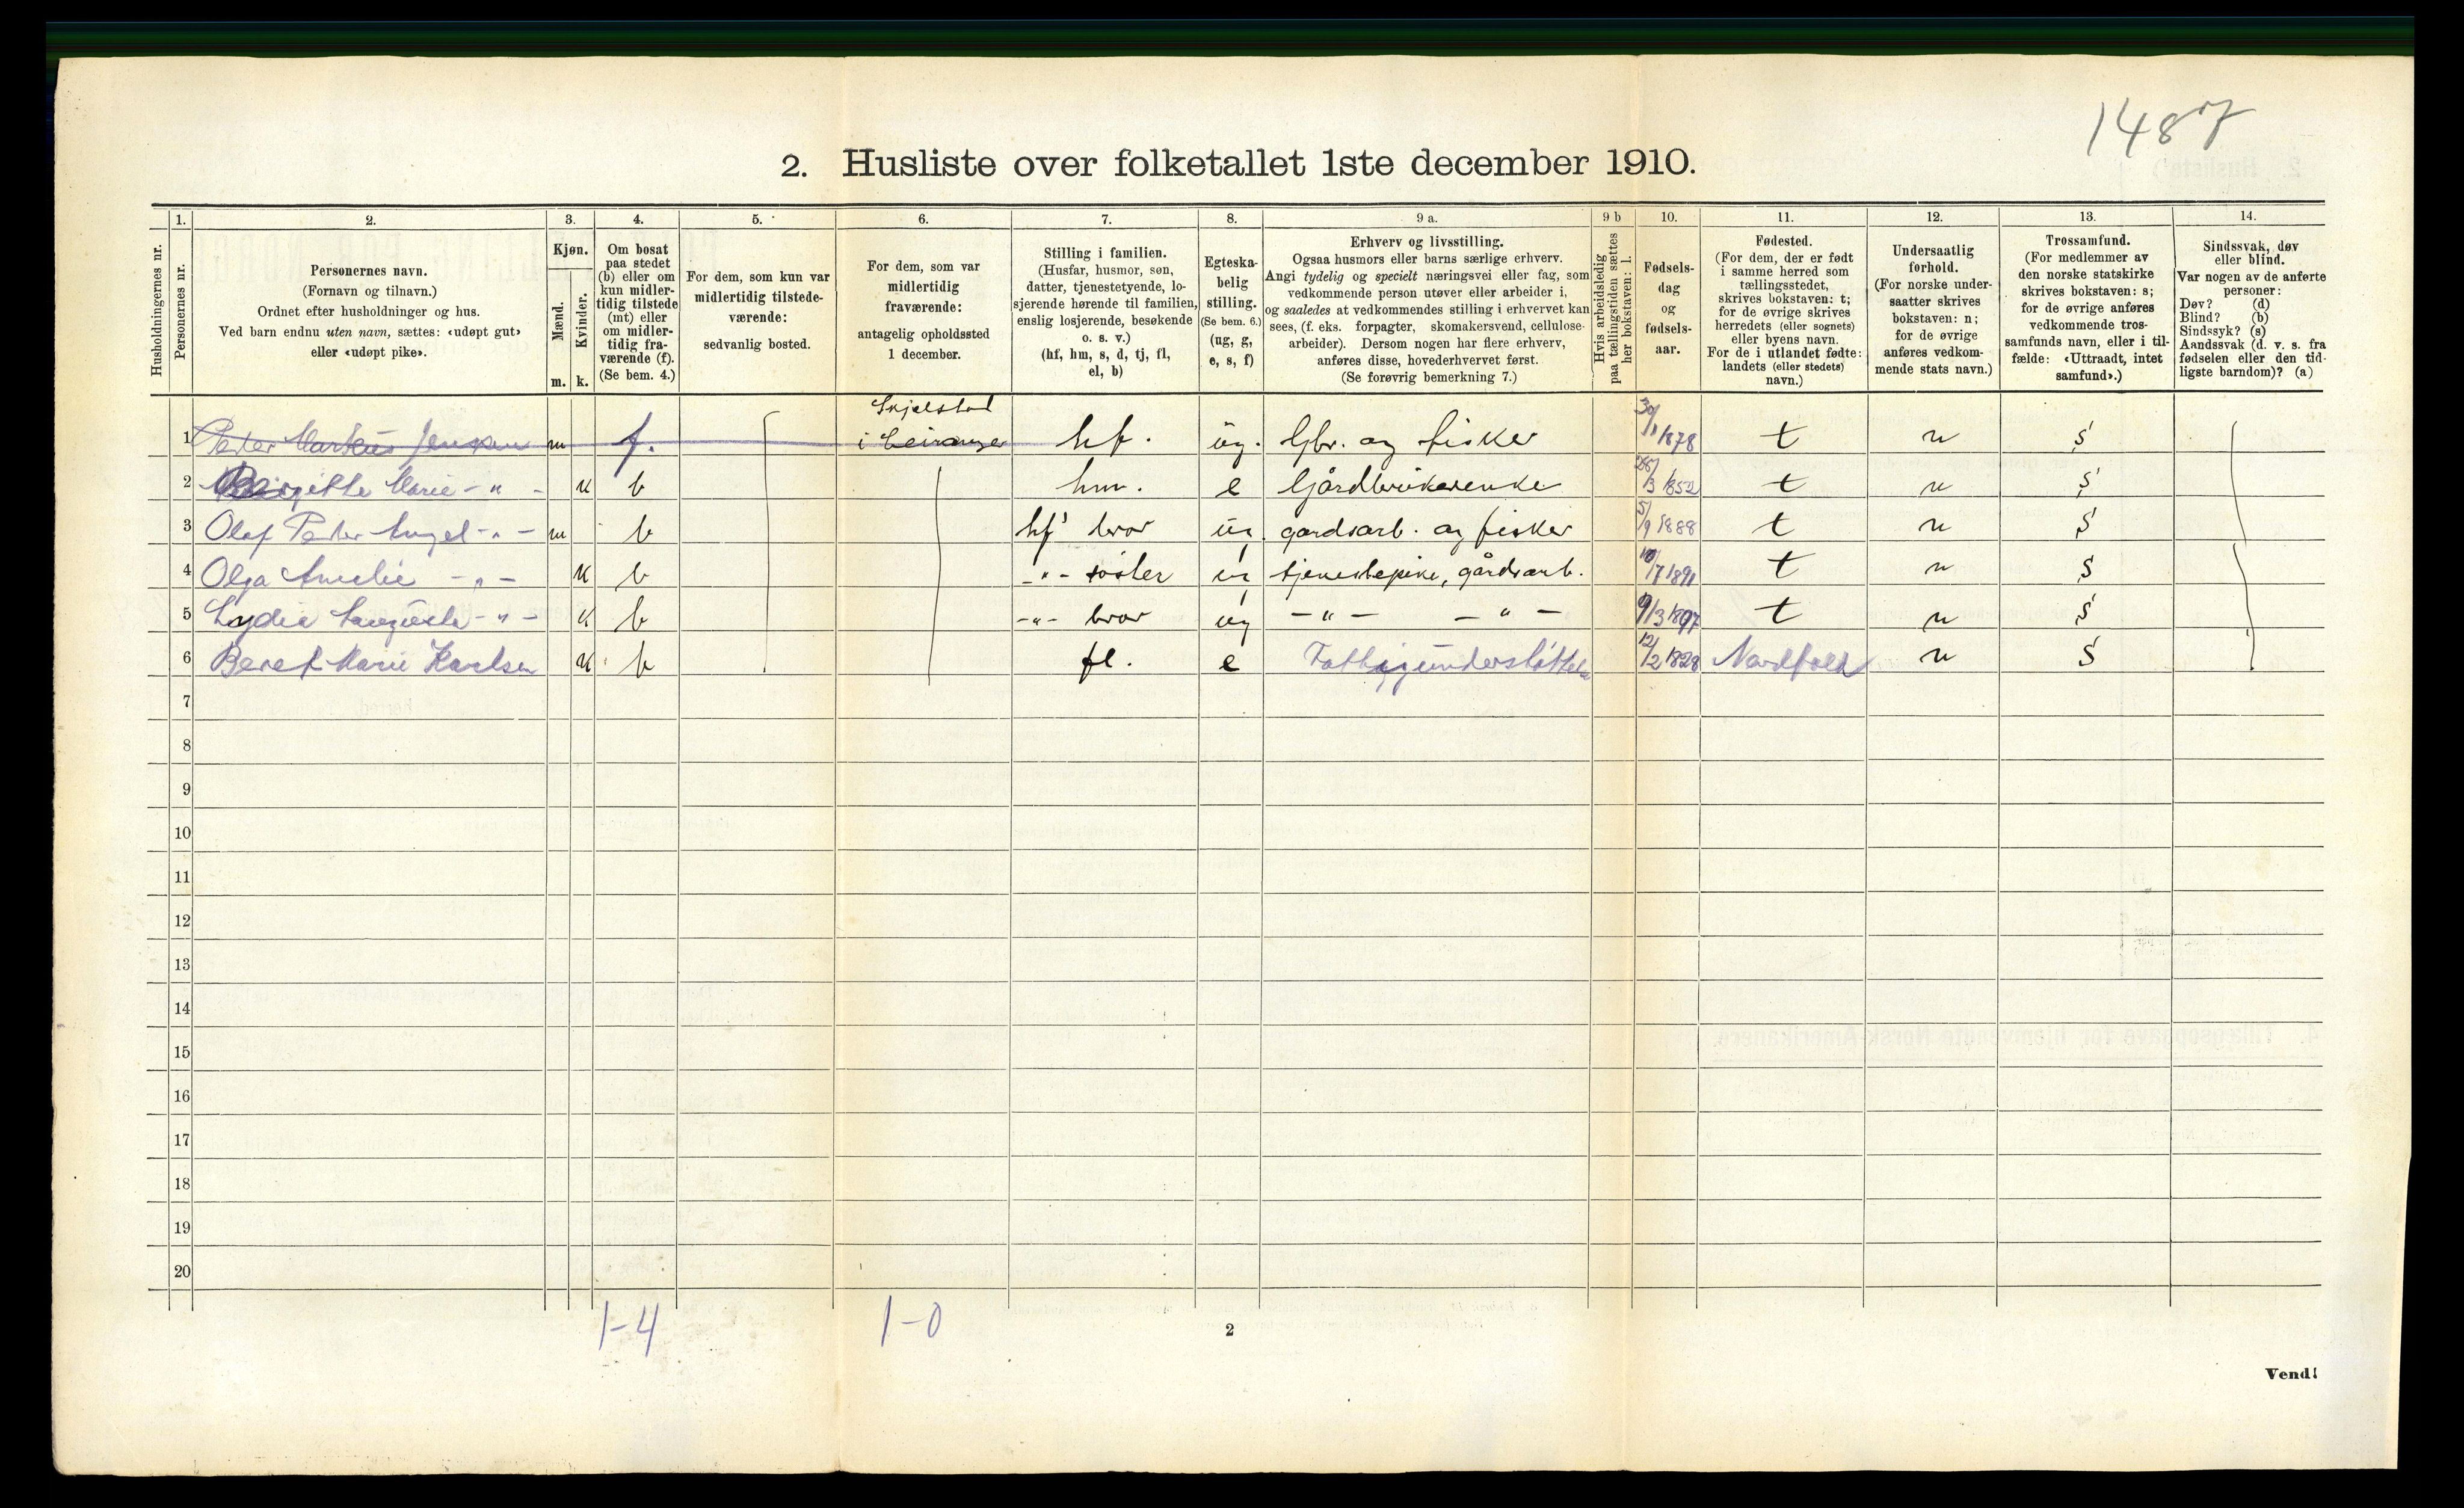 1487
2. Husliste over folketallet 1ste december 1910.
Husholdningernes nr.
1. Personernes nr.
2. Personernes navn. (Fornavn og tilnavn.) Ordnet efter husholdninger og hus. Ved barn endnu uten navn, sættes: «udøpt gut» eller «udøpt pike».
3. Kjøn. Mænd. m. Kvinder. k.
4. Om bosat paa stedet (b) eller om kun midlertidig tilstede (mt) eller om midlertidig fraværende (f). (Se bem. 4.)
5. For dem, som kun var midlertidig tilstedeværende: sedvanlig bosted.
6. For dem, som var midlertidig fraværende: antagelig opholdssted 1 december.
7. Stilling i familien. (Husfar, husmor, søn, datter, tjenestetyende, losjerende hørende til familien, enslig losjerende, besøkende o. s. v.) (hf, hm, s, d, tj, fl, el, b)
8. Egteskabelig stilling. (Se bem. 6.) (ug, g, e, s, f)
9 a. Erhverv og livsstilling. Ogsaa husmors eller barns særlige erhverv. Angi tydelig og specielt næringsvei eller fag, som vedkommende person utøver eller arbeider i, og saaledes at vedkommendes stilling i erhvervet kan sees, (f. eks. forpagter, skomakersvend, cellulosearbeider). Dersom nogen har flere erhverv, anføres disse, hovederhvervet først. (Se forøvrig bemerkning 7.)
9 b Hvis arbeidsledig paa tællingstiden sættes her bokstaven: l.
10. Fødselsdag og fødselsaar.
11. Fødested. (For dem, der er født i samme herred som tællingsstedet, skrives bokstaven: t; for de øvrige skrives herredets (eller sognets) eller byens navn. For de i utlandet fødte: landets (eller stedets) navn.)
12. Undersaatlig forhold. (For norske undersaatter skrives bokstaven: n; for de øvrige anføres vedkommende stats navn.)
13. Trossamfund. (For medlemmer av den norske statskirke skrives bokstaven: s; for de øvrige anføres vedkommende trossamfunds navn, eller i tilfælde: «Uttraadt, intet samfund».)
14. Sindssvak, døv eller blind. Var nogen av de anførte personer: Døv? (d) Blind? (b) Sindssyk? (s) Aandssvak (d. v. s. fra fødselen eller den tidligste barndom)? (a)
1 Peder Markus Jensen m f. Skjelstad i Leiranger hf. ug. Gbr. og fisker 30/1 1878 t n S
2 Birgitte Marie -"- k b hm. e Gårdbrukerenke 26/3 1852 t n S
3 Olaf Peder -"- m b hf's bror ug gardsarb. og fisker 5/9 1888 t n S
4 Olga Amelie -"- k b -"- søster ug tjenestepike, gårdsarb. 10/7 1891 t n S
5 Lydia -"- k b -"- bror ug -"- -"- 9/3 1897 t n S
6 Beret Marie Karlsen k b fl. e Fattigunderstøttet 12/2 1828 Nordfold n S
7
8
9
10
11
12
13
14
15
16
17
18
19
20
1-4 1-0
2
Vend!